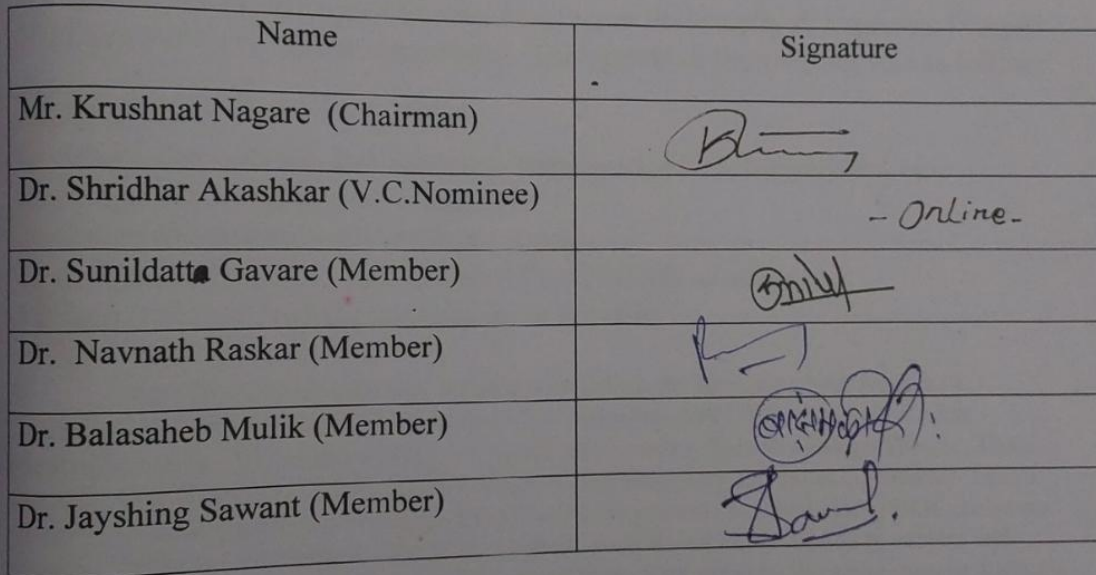 Name Signature
Mr. Krushnat Nagare (Chairman)
Dr. Shridhar Akashkar (V.C.Nominee) - Online-
Dr. Sunildatta Gavare (Member)
Dr. Navnath Raskar (Member)
Dr. Balasaheb Mulik (Member)
Dr. Jayshing Sawant (Member)